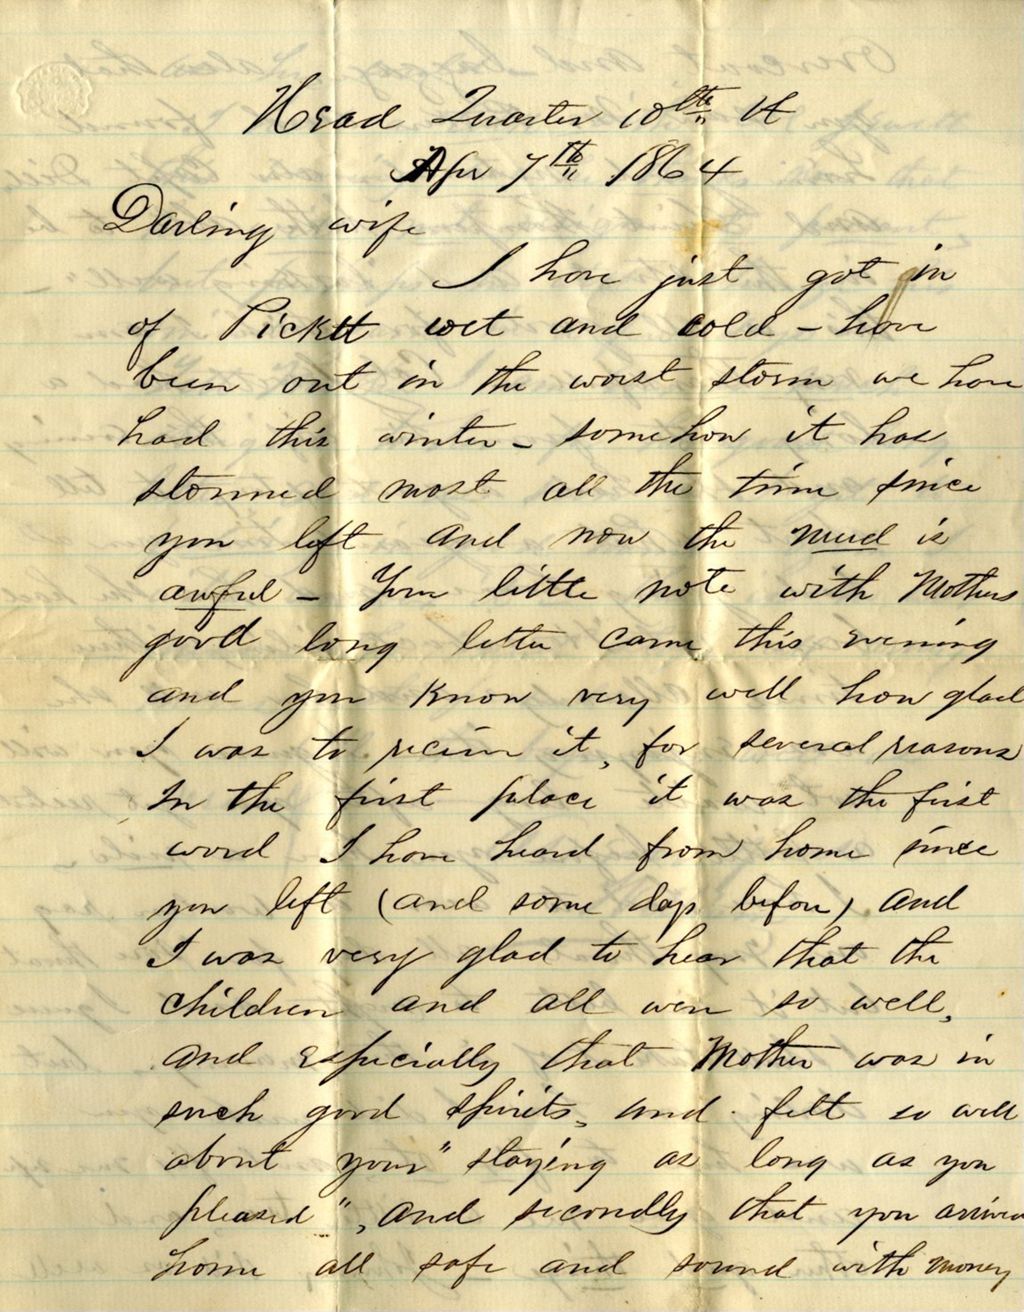 Head Quarter 10th "
Apr 7th 1864
Darling wife
I have just got in
of Pickett wet and cold – have
been out in the worst storm we have
had this winter – somehow it has
stormed most all the time since
you left and now the mud is
awful – Your little note with Mothers
good long letter came this evening
and you know very well how glad
I was to recieve it, for several reasons
In the first place it was the first
word I have heard from home since
you left (and some days before) and
I was very glad to hear that the
children and all were so well,
and especially that Mother was in
such good spirits, and felt so well
about your "staying as long as you
pleased", and secondly that you arrived
home all safe and sound with money